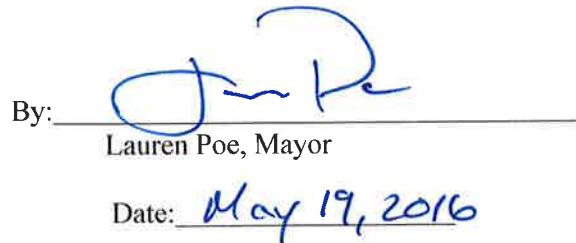 By:
Lauren Poe, Mayor
Date: May 19, 2016